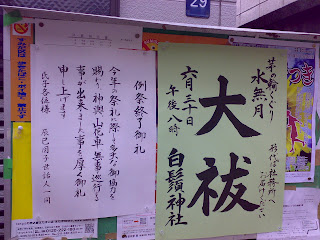 29
例祭終了御礼
今年の祭礼に際し多大な御協力を
賜わり神輿、山花車無事巡行する
事が出来ました事を厚く御礼
申し上げます
氏子各位様
辰巳囃子世話人一同
茅の輪くぐり
水無月
大祓
六月三十日
午後八時
白鬚神社
形代は社務所へ
お届けください